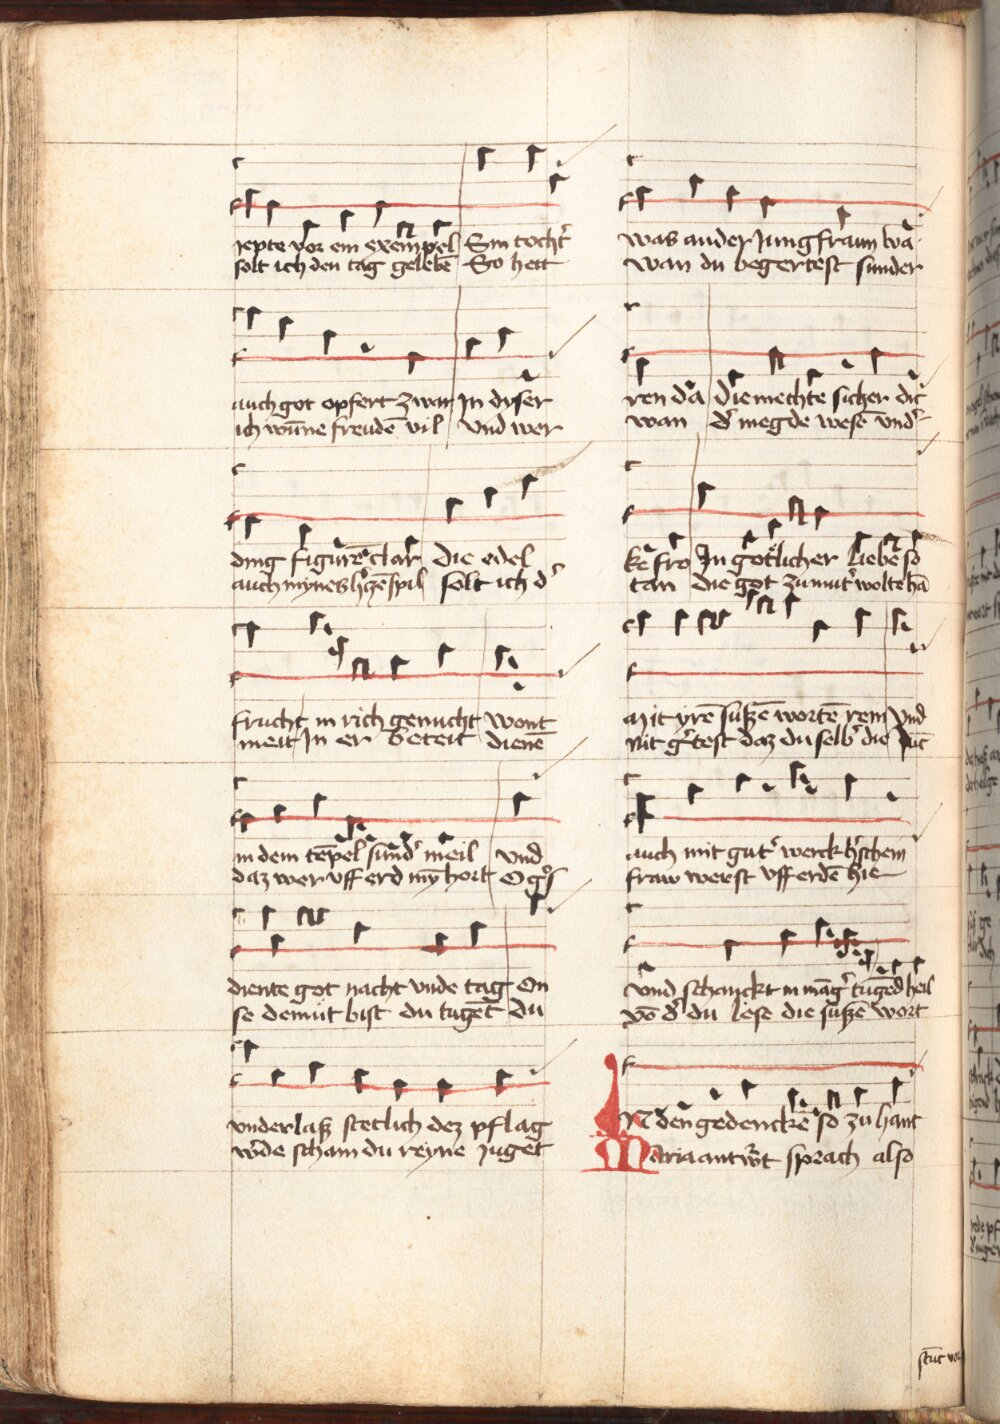 iepte vor ein exempel Sin tocht̉
solt ich den tag gelebē So hett
auch got opfert zwar In dyser
ich wūne freudē vil Und wer
ding figurē clar die edel
auch mynes h̉cē spil solt ich d̉
frucht in rich genucht wont
meit In er bereit dienē
in dem tēpel sund̉ meil Und
daz wer uff erd mȳ hort O
diente got nacht unde tag On
se demut bist du tugēt du
underlaß stetlich dez pflag
scham du reyne Jugēt
was ander Jungfraun wa
wan du begertest sunder
ren da die mechte sicher dic
wan d̉ megde wesē und̉
ke fro In gotlicher liebe so
tan die got zu mut̉ wolte hā
Mit yrē sußē wortē rein Und
nit g̉test daz du selb̉ die
auch mit gut̉ werck h̉schein
fraw werst uff erdē hie
und schanckt in māg̉ tugēd heil
vō d̉ du lese die sußē wort
IN den gedenckē so zu hant
Maria antw̉t sprach also